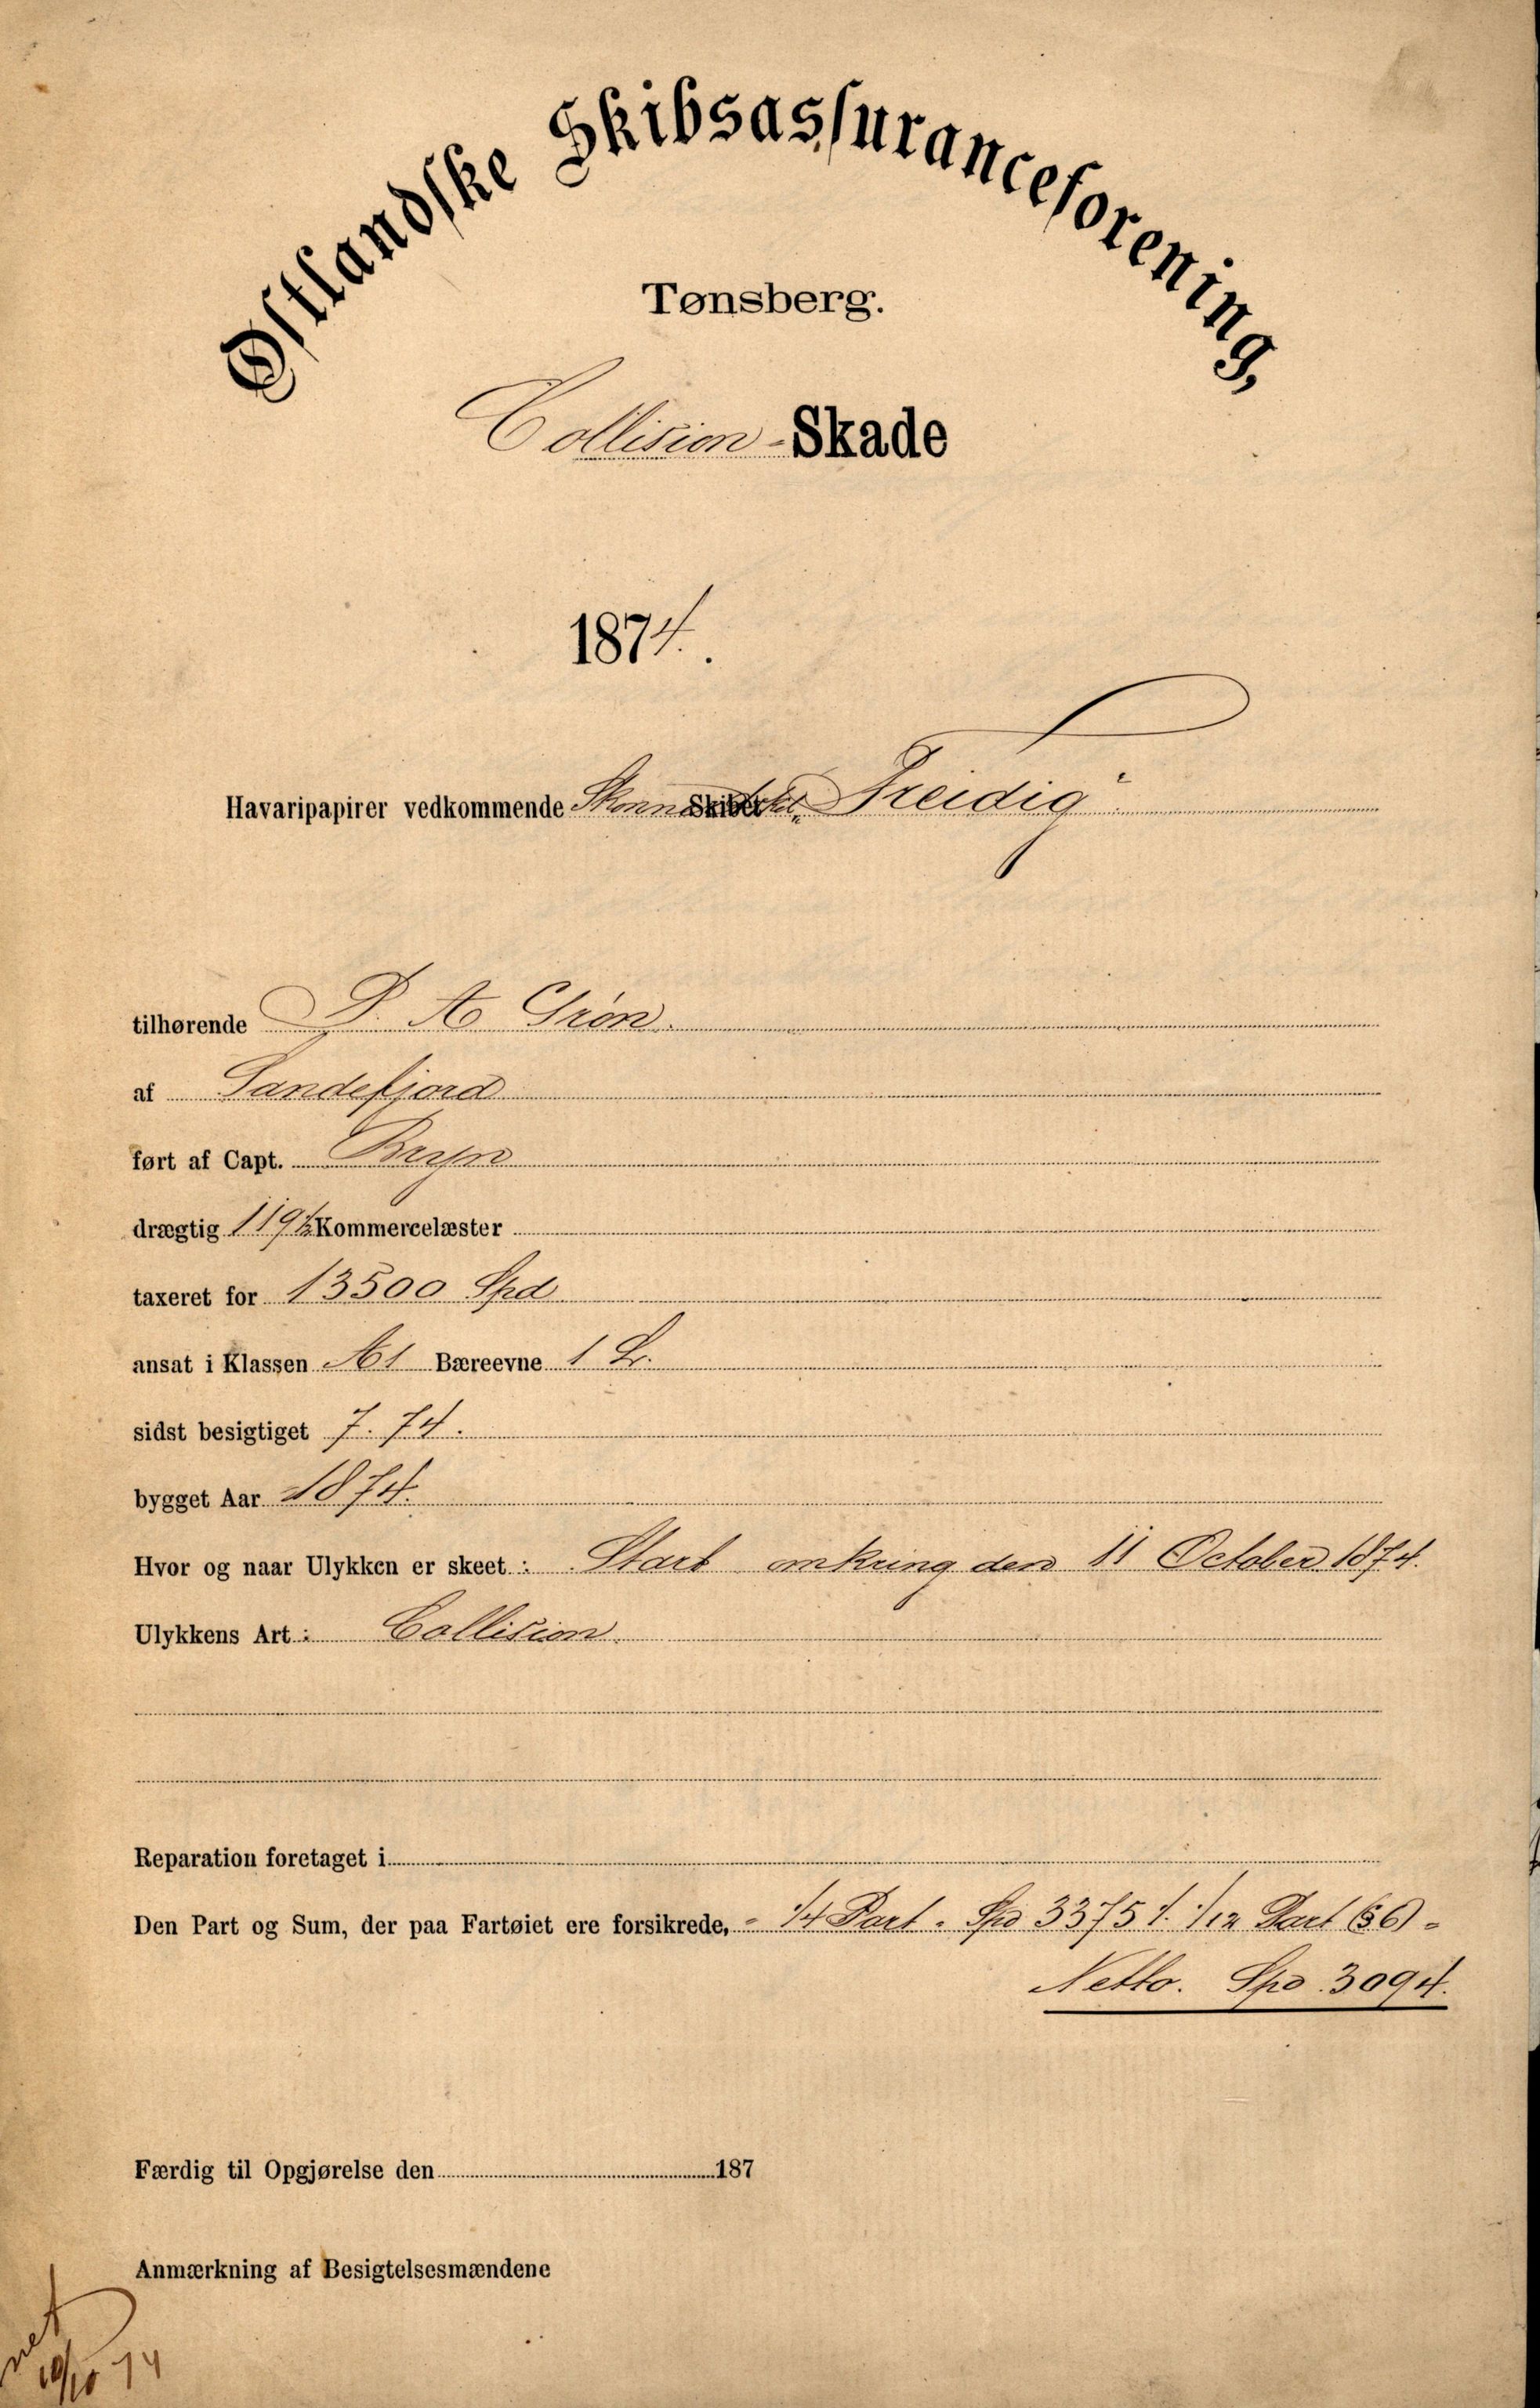 Østlandske Skibsassuranceforening,
Tønsberg.
Collision-Skade
1874.
Havaripapirer vedkommende Skibet „Freidig"
tilhørende P. A. Grøn
af Sandefjord
ført af Capt. Bryn
drægtig 119½ Kommercelæster
taxeret for 13500 Spd
ansat i Klassen A1 Bæreevne 1 Kr.
sidst besigtiget 7. 74.
bygget Aar 1874.
Hvor og naar Ulykken er skeet: Start omkring den 11 October 1874.
Ulykkens Art: Collision
Reparation foretaget i
Den Part og Sum, der paa Fartøiet ere forsikrede, - 1/4 Part - Spd 3375 ÷ 1/12 Part (86) -
Netto. Spd. 3094.
Færdig til Opgjørelse den 187
Anmærkning af Besigtelsesmændene
19/10 74